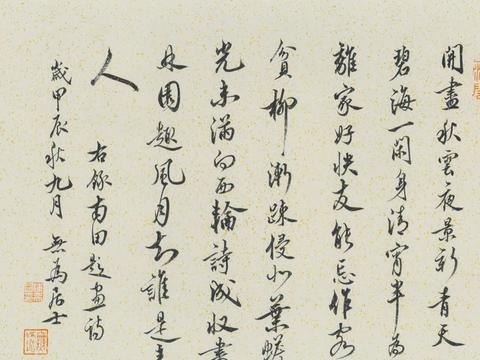 開盡秋雲夜景新青天
碧海一閑身清宵半為
離家好快友能忘作客
貧柳漸疎侵北葉蟾
光未滿向西輪詩成收盡
林園趣風月知誰是主
人
右錄南田題畫詩
歲甲辰秋九月 無為居士